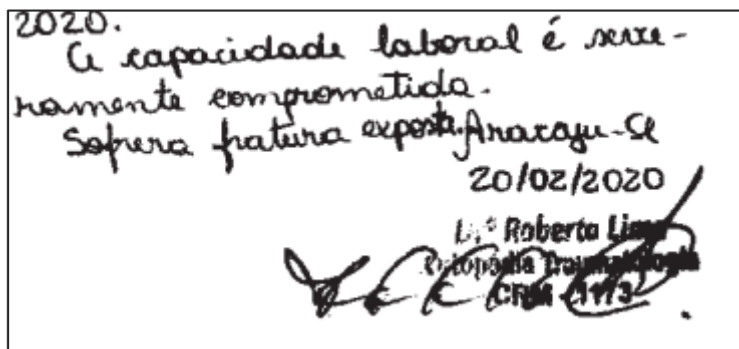 2020.
A capacidade laboral é seve-
ramente comprometida.
Sofrera fratura exposta. Aracaju-SE
20/02/2020
Dr.ª Roberta Lima
Ortopedia Traumatologia
CRM - 1173